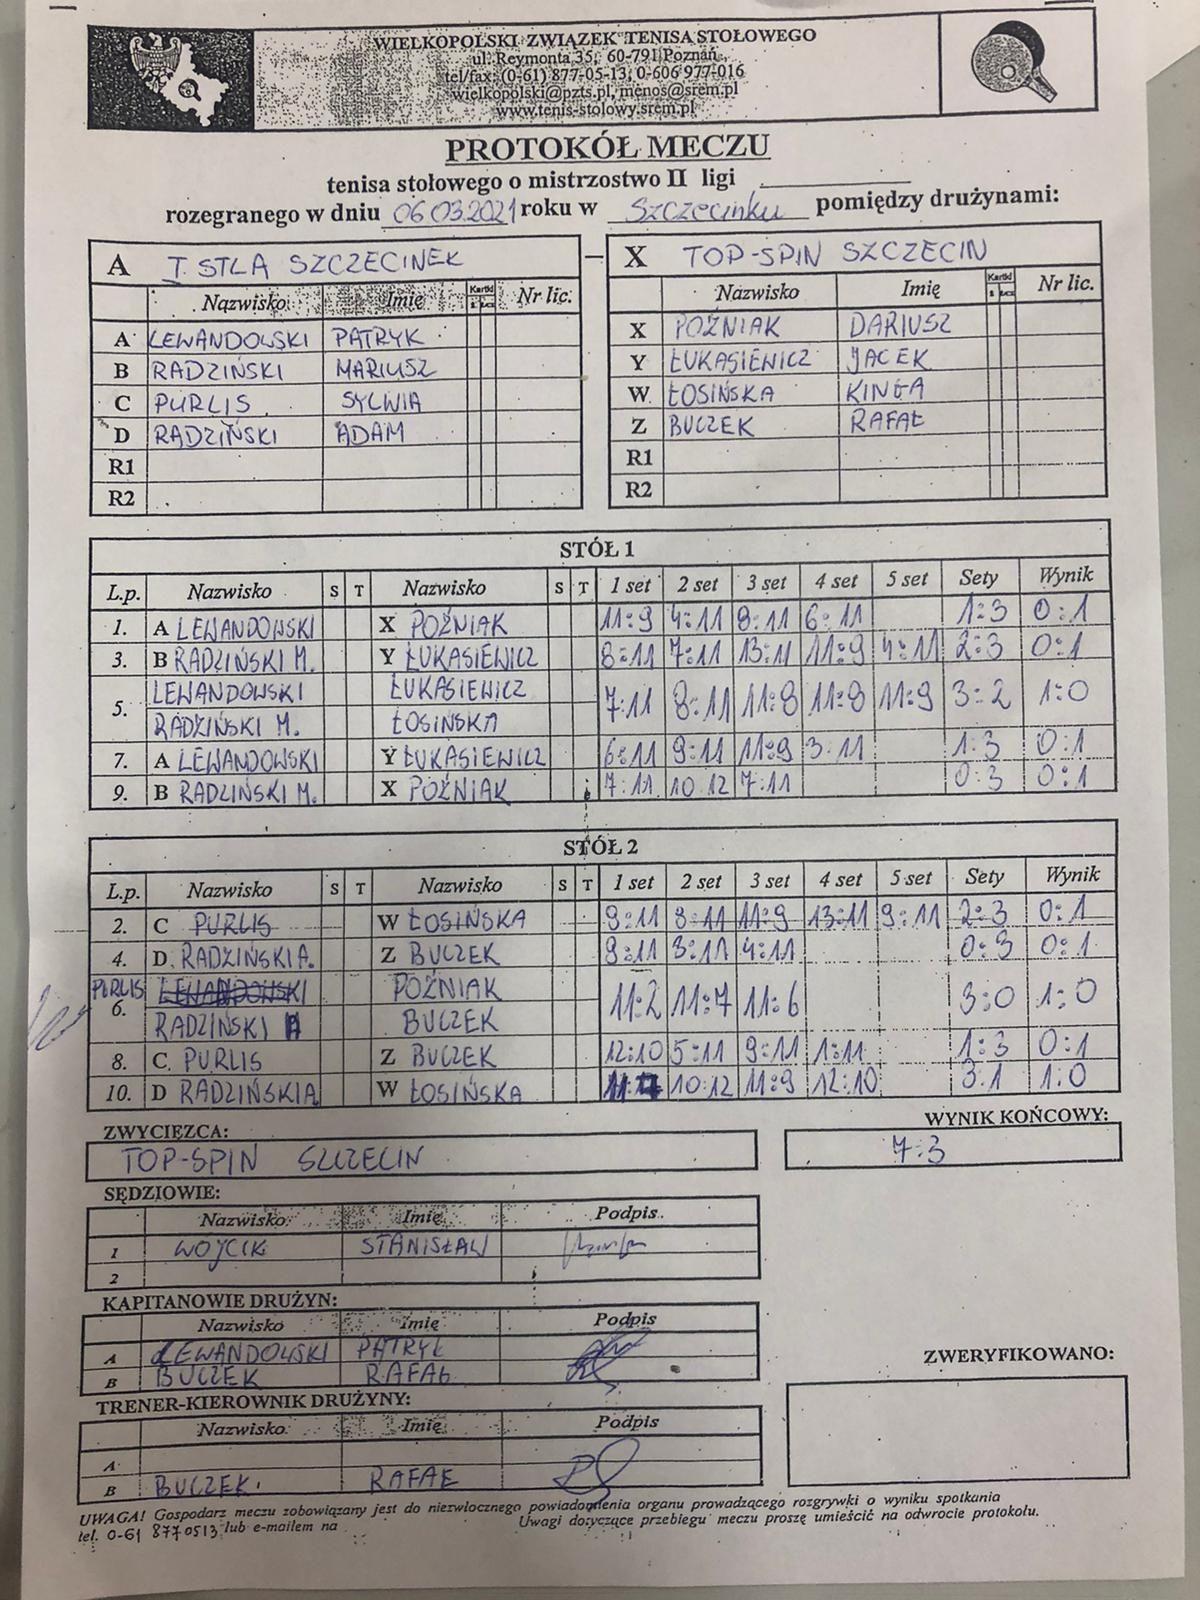 WIELKOPOLSKI ZWIĄZEK TENISA STOŁOWEGO
ul. Reymonta 35, 60-791 Poznań
tel/fax: (0-61) 877-05-13, 0-606 977-016
wielkopolski@pzts.pl, menos@srem.pl
www.tenis-stolowy.srem.pl
PROTOKÓŁ MECZU
tenisa stołowego o mistrzostwo II ligi
rozegranego w dniu 06.03.2021 roku w Szczecinku pomiędzy drużynami:
A I STLA SZCZECINEK – X TOP-SPIN SZCZECIN
Nazwisko Imię Kartki Nr lic. Nazwisko Imię Kartki Nr lic.
A LEWANDOWSKI PATRYK X POŹNIAK DARIUSZ
B RADZIŃSKI MARIUSZ Y ŁUKASIEWICZ JACEK
C PURLIS SYLWIA W ŁOSIŃSKA KINGA
D RADZIŃSKI ADAM Z BUCZEK RAFAŁ
R1 R1
R2 R2
STÓŁ 1
L.p. Nazwisko S T Nazwisko S T 1 set 2 set 3 set 4 set 5 set Sety Wynik
1. A LEWANDOWSKI X POŹNIAK 11:9 4:11 8:11 6:11 1:3 0:1
3. B RADZIŃSKI M. Y ŁUKASIEWICZ 8:11 7:11 13:11 11:9 4:11 2:3 0:1
LEWANDOWSKI ŁUKASIEWICZ
5. 7:11 8:11 11:8 11:8 11:9 3:2 1:0
RADZIŃSKI M. ŁOSIŃSKA
7. A LEWANDOWSKI Y ŁUKASIEWICZ 6:11 9:11 11:9 3:11 1:3 0:1
9. B RADZIŃSKI M. X POŹNIAK 7:11 10:12 7:11 0:3 0:1
STÓŁ 2
L.p. Nazwisko S T Nazwisko S T 1 set 2 set 3 set 4 set 5 set Sety Wynik
2. C PURLIS W ŁOSIŃSKA 9:11 8:11 11:9 13:11 9:11 2:3 0:1
4. D. RADZIŃSKI A. Z BUCZEK 9:11 3:11 4:11 0:3 0:1
PURLIS LEWANDOWSKI POŹNIAK
6. 11:2 11:7 11:6 3:0 1:0
RADZIŃSKI A BUCZEK
8. C. PURLIS Z BUCZEK 12:10 5:11 9:11 1:11 1:3 0:1
10. D RADZIŃSKI A W ŁOSIŃSKA 10:12 11:9 12:10 3:1 1:0
ZWYCIĘZCA: WYNIK KOŃCOWY:
TOP-SPIN SZCZECIN 7:3
SĘDZIOWIE:
Nazwisko Imię Podpis
1 WOJCIK STANISŁAW
2
KAPITANOWIE DRUŻYN:
Nazwisko Imię Podpis
A LEWANDOWSKI PATRYK
B BUCZEK RAFAŁ
ZWERYFIKOWANO:
TRENER-KIEROWNIK DRUŻYNY:
Nazwisko Imię Podpis
A
B BUCZEK RAFAŁ
UWAGA! Gospodarz meczu zobowiązany jest do niezwłocznego powiadomienia organu prowadzącego rozgrywki o wyniku spotkania
tel. 0-61 8770513 lub e-mailem na Uwagi dotyczące przebiegu meczu proszę umieścić na odwrocie protokołu.